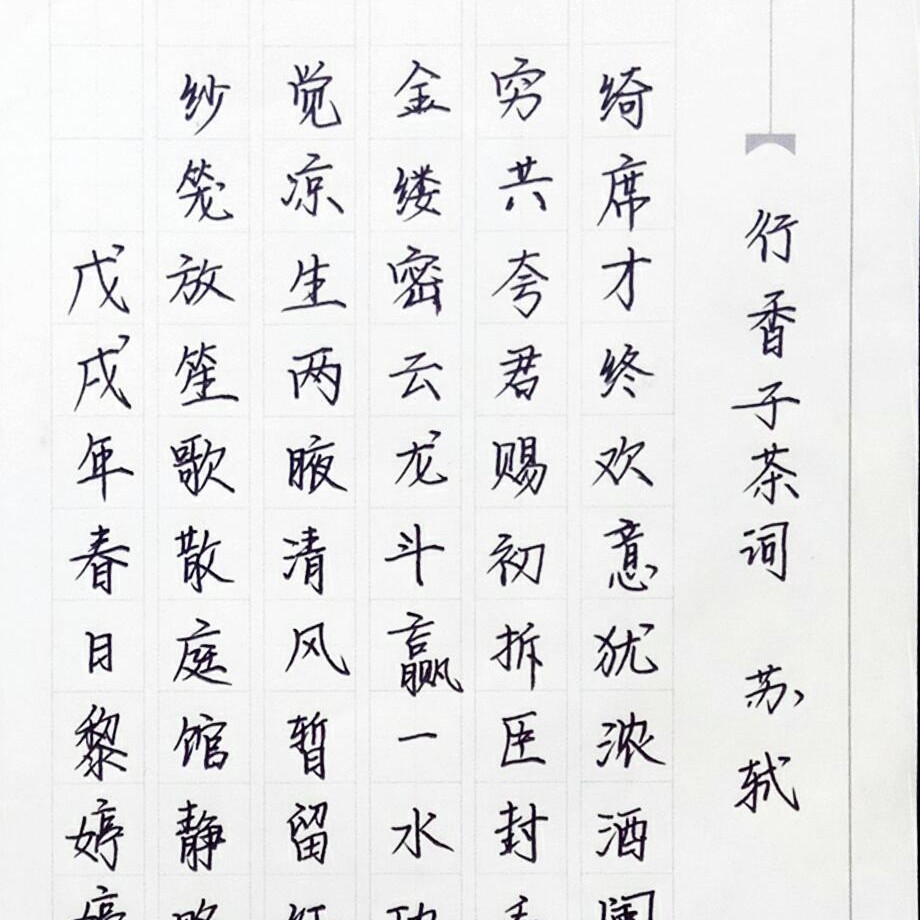 行香子茶词 苏轼
绮席才终欢意犹浓酒
穷共夸君赐初拆臣封
金缕密云龙斗赢一水
觉凉生两腋清风暂留
纱笼放笙歌散庭馆静
戊戌年春日黎婷